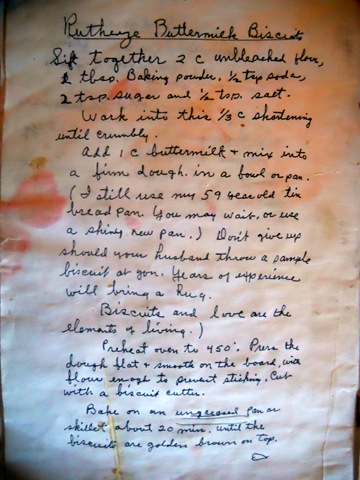 Rutheze Buttermilk Biscuits
Sift together 2 c unbleached flour,
2 tbsp. Baking powder, ½ tsp soda,
2 tsp. sugar and ½ tsp. salt.
Work into this ⅓ c shortening
until crumbly.
Add 1 c buttermilk + mix into
a firm dough. in a bowl or pan.
(I still use my 59 year old tin
bread pan. You may wait, or use
a shiny new pan.) Don't give up
should your husband throw a sample
biscuit at you. Years of experience
will bring a hug.
Biscuits and love are the
elements of living.)
Preheat oven to 450°. Press the
dough flat + smooth on the board, with
flour enogh to prevent sticking. Cut
with a biscuit cutter.
Bake on an ungreased pan or
skillet about 20 min. until the
biscuits are golden brown on top.